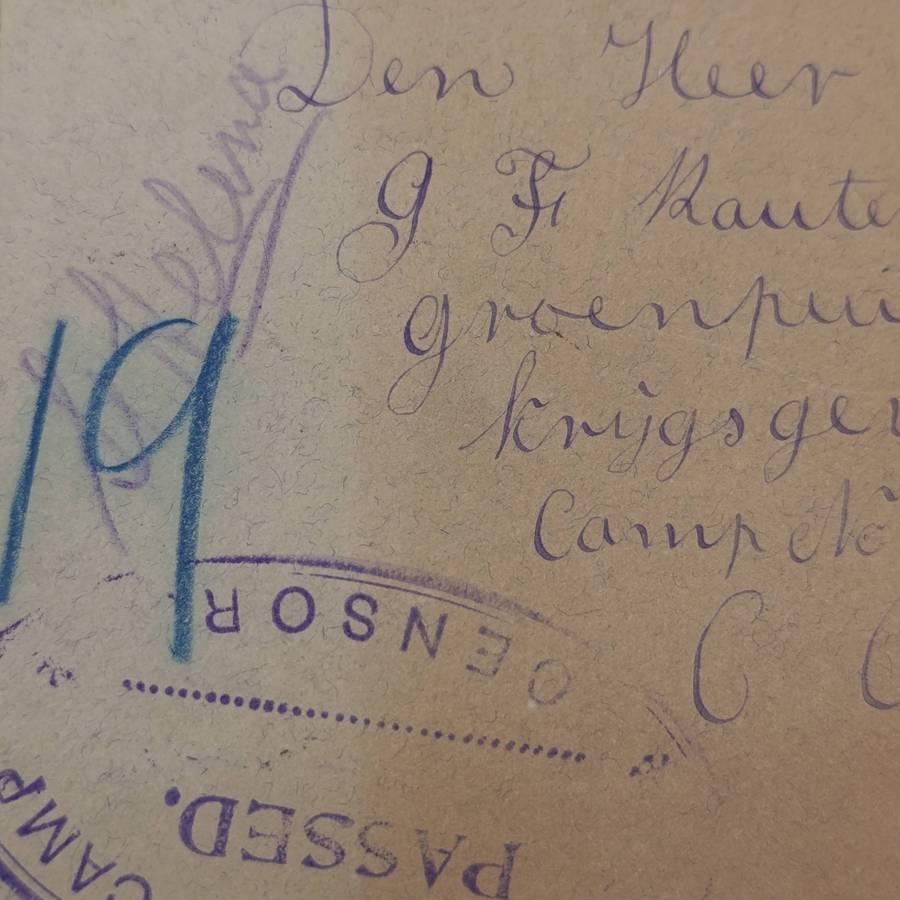 Den Heer
G F Raute
groenpui
krijgsgev
Camp No
C C
St Helena
19
CENSOR
PASSED.
CAMP